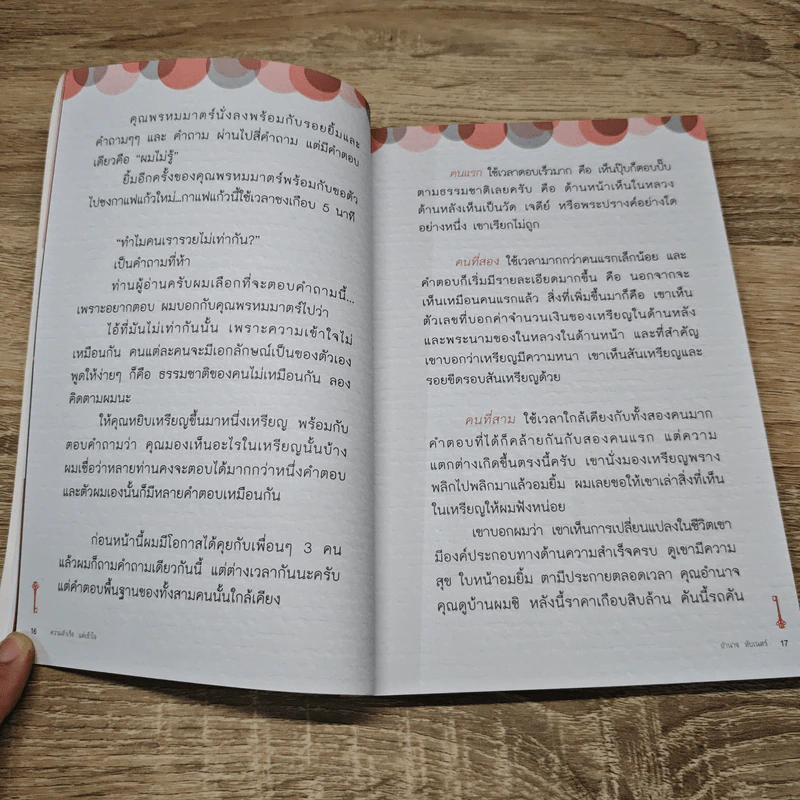 คุณพรหมมาตร์นั่งลงพร้อมกับรอยยิ้มและ
คำถามๆๆ และ คำถาม ผ่านไปสี่คำถาม แต่มีคำตอบ
เดียวคือ “ผมไม่รู้”
ยิ้มอีกครั้งของคุณพรหมมาตร์พร้อมกับขอตัว
ไปชงกาแฟแก้วใหม่...กาแฟแก้วนี้ใช้เวลาชงเกือบ 5 นาที
“ทำไมคนเรารวยไม่เท่ากัน?”
เป็นคำถามที่ห้า
ท่านผู้อ่านครับผมเลือกที่จะตอบคำถามนี้...
เพราะอยากตอบ ผมบอกกับคุณพรหมมาตร์ไปว่า
ไอ้ที่มันไม่เท่ากันนั้น เพราะความเข้าใจไม่
เหมือนกัน คนแต่ละคนจะมีเอกลักษณ์เป็นของตัวเอง
พูดให้ง่ายๆ ก็คือ ธรรมชาติของคนไม่เหมือนกัน ลอง
คิดตามผมนะ
ให้คุณหยิบเหรียญขึ้นมาหนึ่งเหรียญ พร้อมกับ
ตอบคำถามว่า คุณมองเห็นอะไรในเหรียญนั้นบ้าง
ผมเชื่อว่าหลายท่านคงจะตอบได้มากกว่าหนึ่งคำตอบ
และตัวผมเองนั้นก็มีหลายคำตอบเหมือนกัน
ก่อนหน้านี้ผมมีโอกาสได้คุยกับเพื่อนๆ 3 คน
แล้วผมก็ถามคำถามเดียวกันนี้ แต่ต่างเวลากันนะครับ
แต่คำตอบพื้นฐานของทั้งสามคนนั้นใกล้เคียง
16 ความสำเร็จ แค่เข้าใจ
คนแรก ใช้เวลาตอบเร็วมาก คือ เห็นปุ๊บก็ตอบปั๊บ
ตามธรรมชาติเลยครับ คือ ด้านหน้าเห็นในหลวง
ด้านหลังเห็นเป็นวัด เจดีย์ หรือพระปรางค์อย่างใด
อย่างหนึ่ง เขาเรียกไม่ถูก
คนที่สอง ใช้เวลามากกว่าคนแรกเล็กน้อย และ
คำตอบก็เริ่มมีรายละเอียดมากขึ้น คือ นอกจากจะ
เห็นเหมือนคนแรกแล้ว สิ่งที่เพิ่มขึ้นมาก็คือ เขาเห็น
ตัวเลขที่บอกค่าจำนวนเงินของเหรียญในด้านหลัง
และพระนามของในหลวงในด้านหน้า และที่สำคัญ
เขาบอกว่าเหรียญมีความหนา เขาเห็นสันเหรียญและ
รอยขีดรอบสันเหรียญด้วย
คนที่สาม ใช้เวลาใกล้เคียงกับทั้งสองคนมาก
คำตอบที่ได้ก็คล้ายกันกับสองคนแรก แต่ความ
แตกต่างเกิดขึ้นตรงนี้ครับ เขานั่งมองเหรียญพราง
พลิกไปพลิกมาแล้วอมยิ้ม ผมเลยขอให้เขาเล่าสิ่งที่เห็น
ในเหรียญให้ผมฟังหน่อย
เขาบอกผมว่า เขาเห็นการเปลี่ยนแปลงในชีวิตเขา
มีองค์ประกอบทางด้านความสำเร็จครบ ดูเขามีความ
สุข ใบหน้าอมยิ้ม ตามีประกายตลอดเวลา คุณอำนาจ
คุณดูบ้านผมซิ หลังนี้ราคาเกือบสิบล้าน คันนี้รถคัน
อำนาจ ทับเนตร์ 17